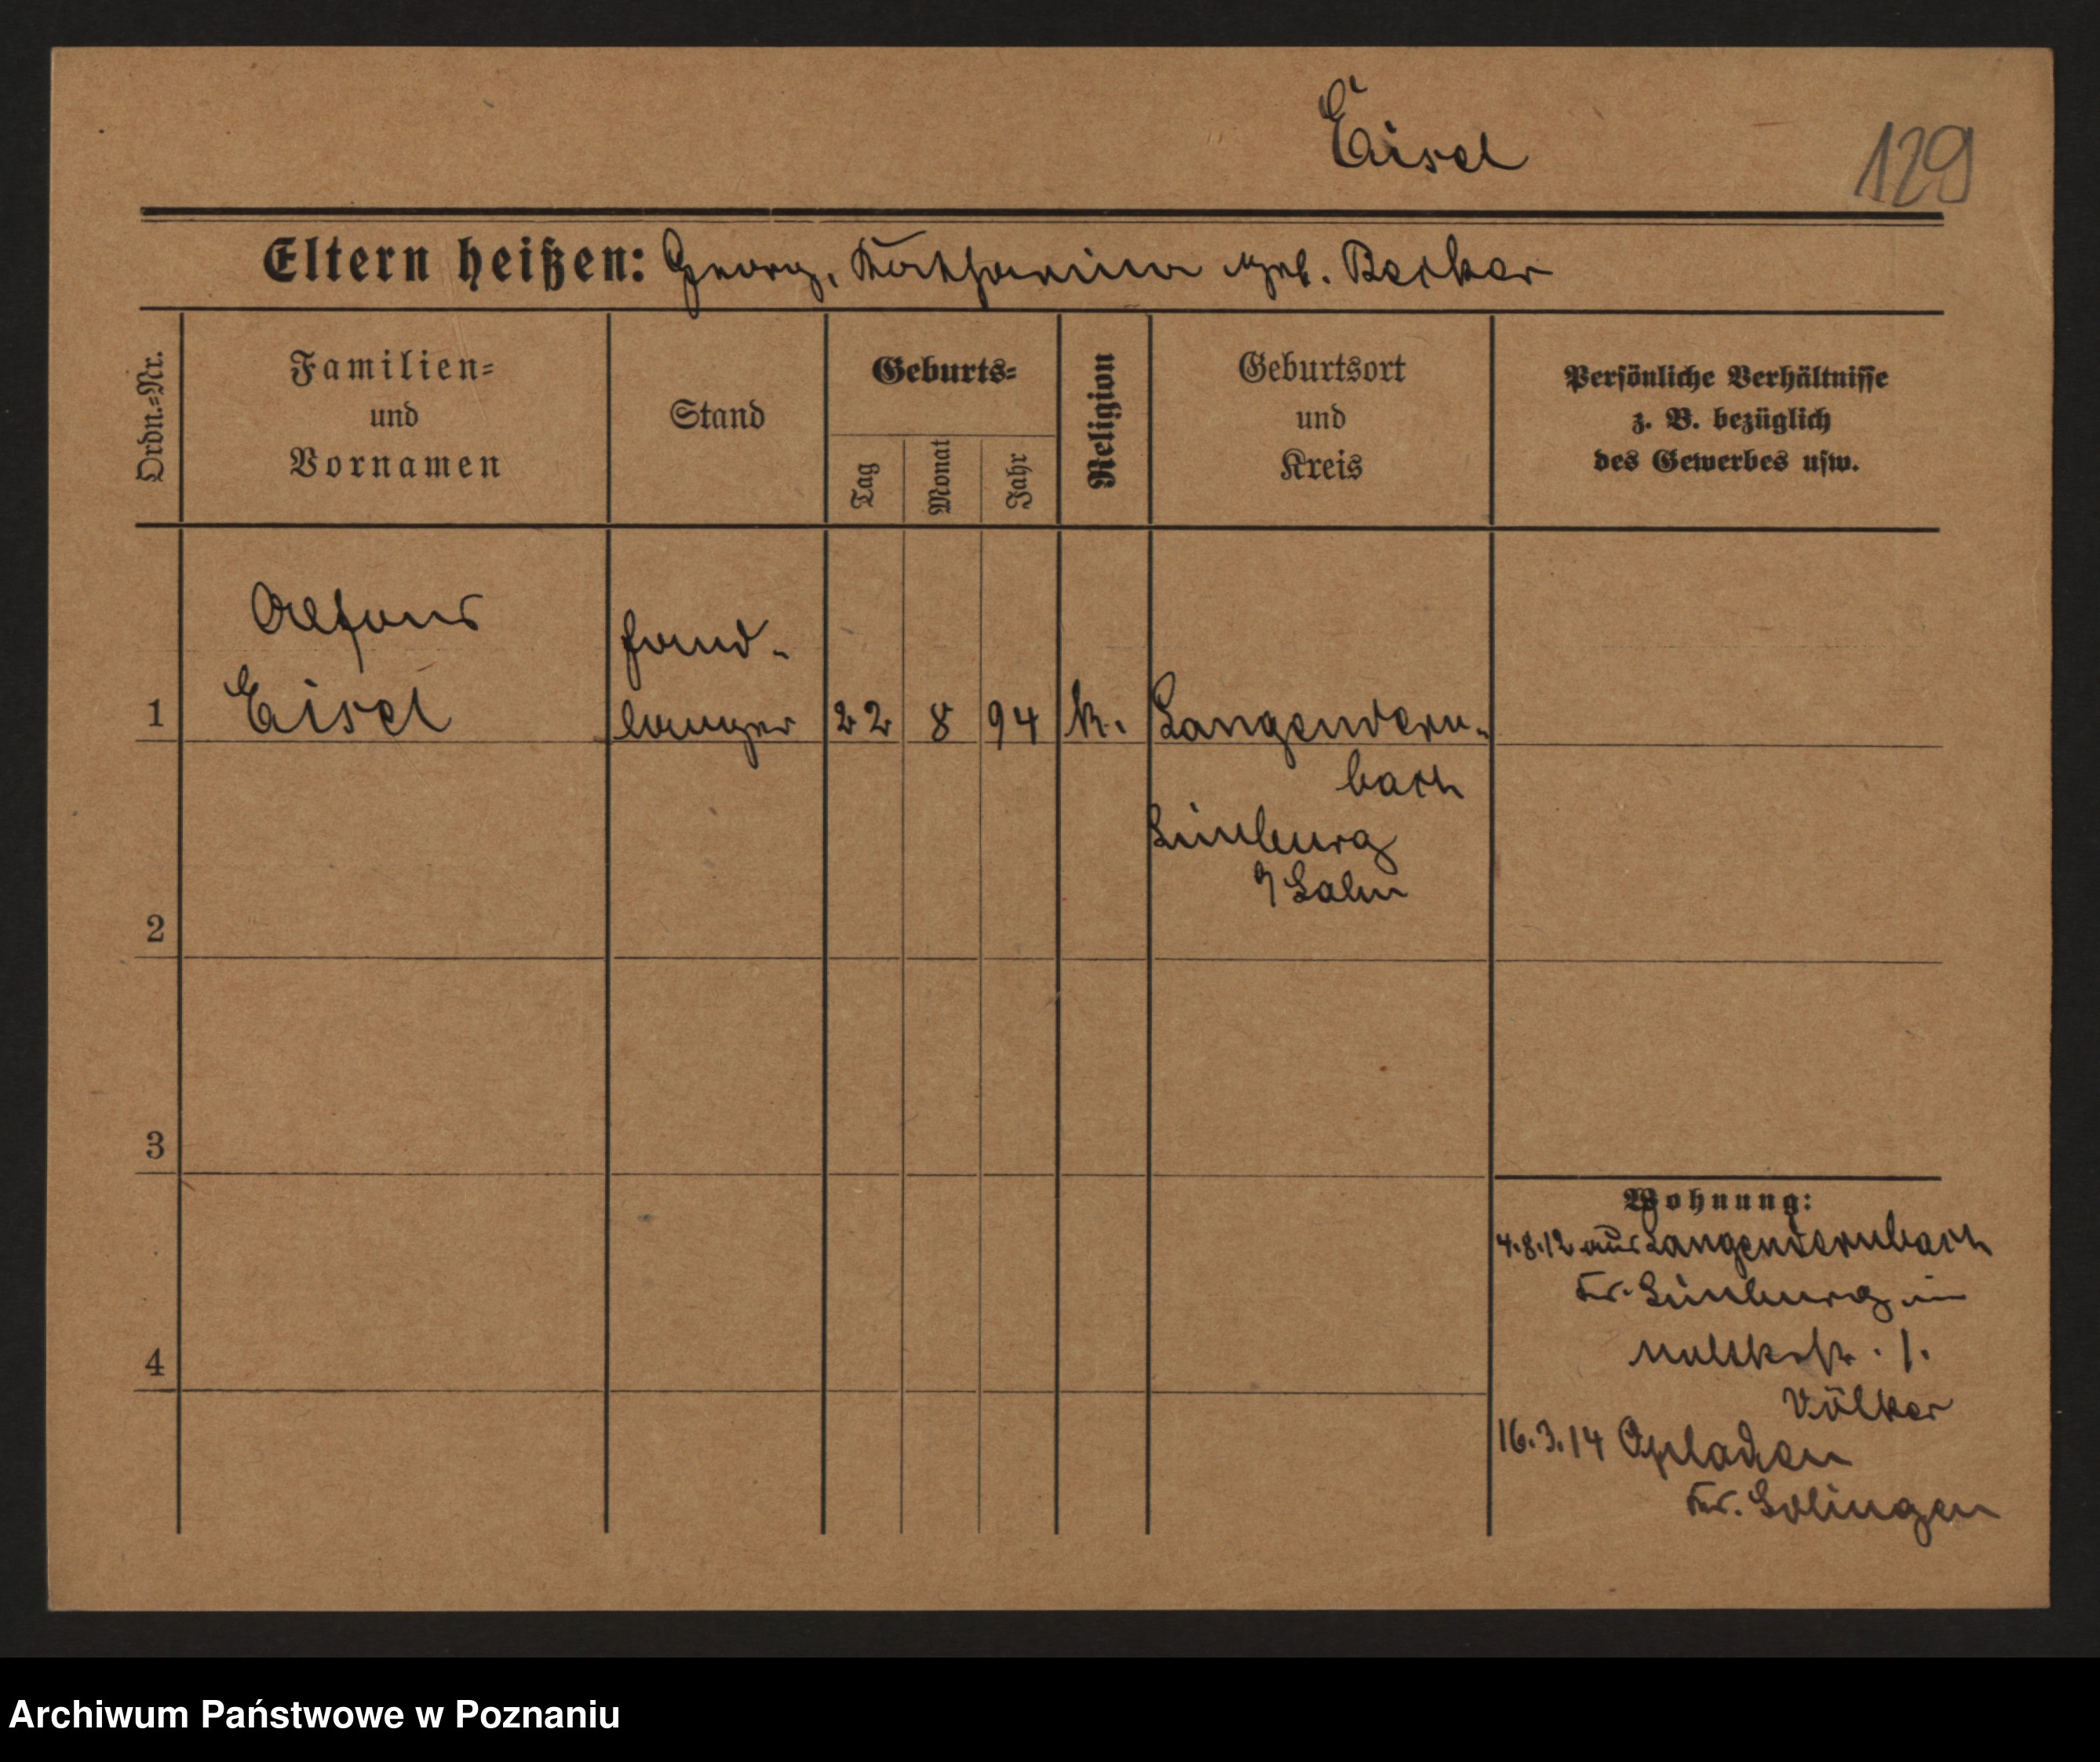 Eisel
129
Eltern heißen: Georg, Katharina geb. Becker
Ordn.=Nr.
Familien=
und
Vornamen
Stand
Geburts=
Tag
Monat
Jahr
Religion
Geburtsort
und
Kreis
Persönliche Verhältnisse
z. B. bezüglich
des Gewerbes usw.
Alfons
Eisel
Hand-
langer
1
22
8
94
k.
Langendern-
bach
Limburg
a/Lahn
2
3
4
Wohnung:
4.8.12 aus Langendernbach
Kr. Limburg in
Moltkestr. 1.
Völker
16.3.14 Opladen
Kr. Solingen
Archiwum Państwowe w Poznaniu